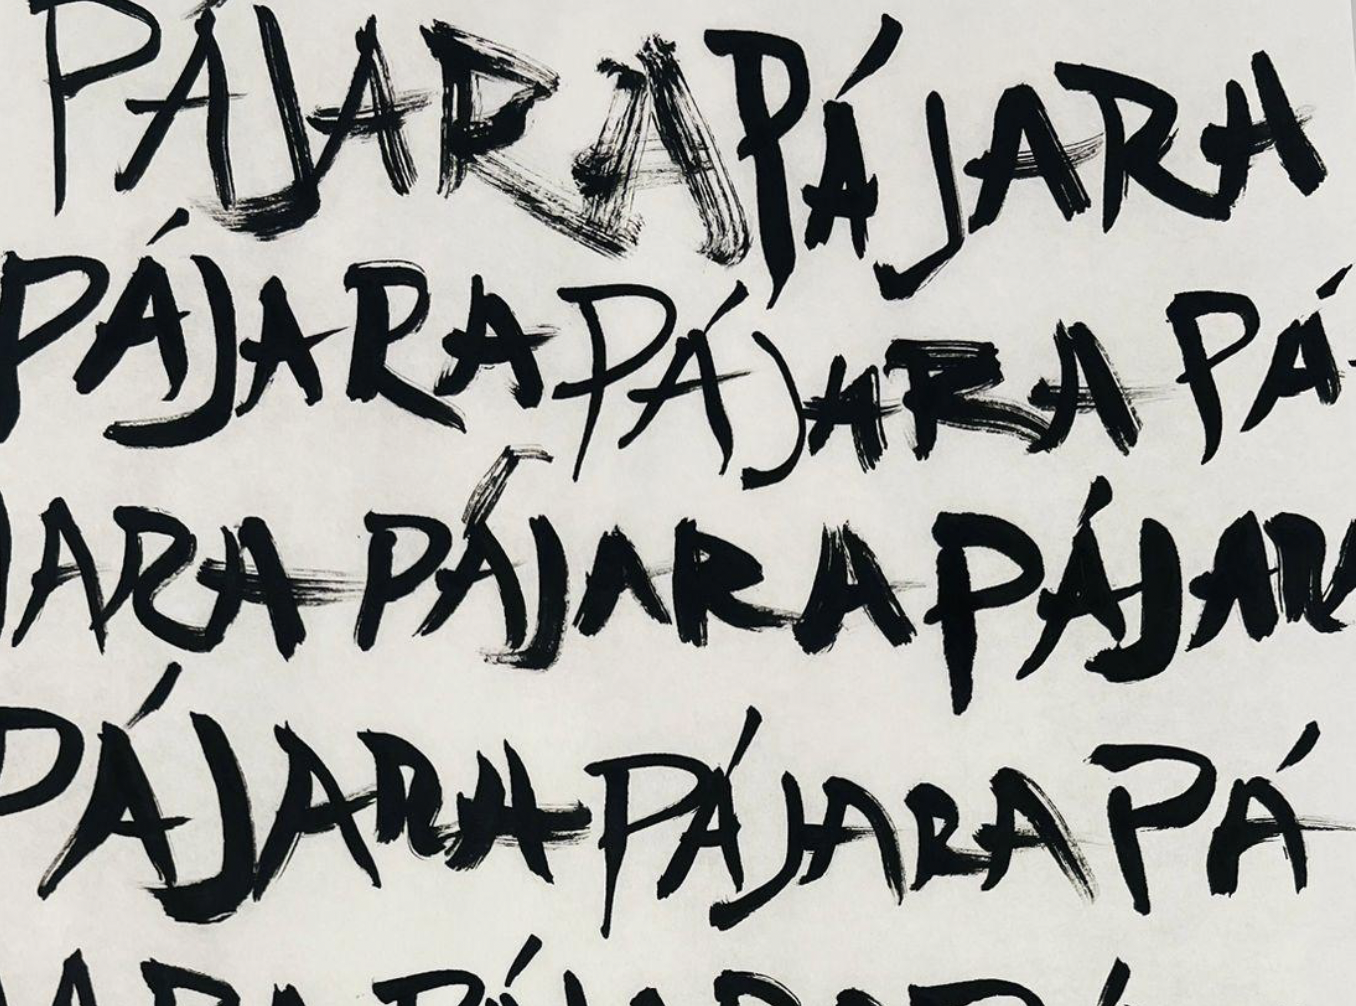 PÁJARA PÁJARA
PÁJARA PÁJARA PÁ
JARA PÁJARA PÁJAR
PÁJARA PÁJARA PÁ